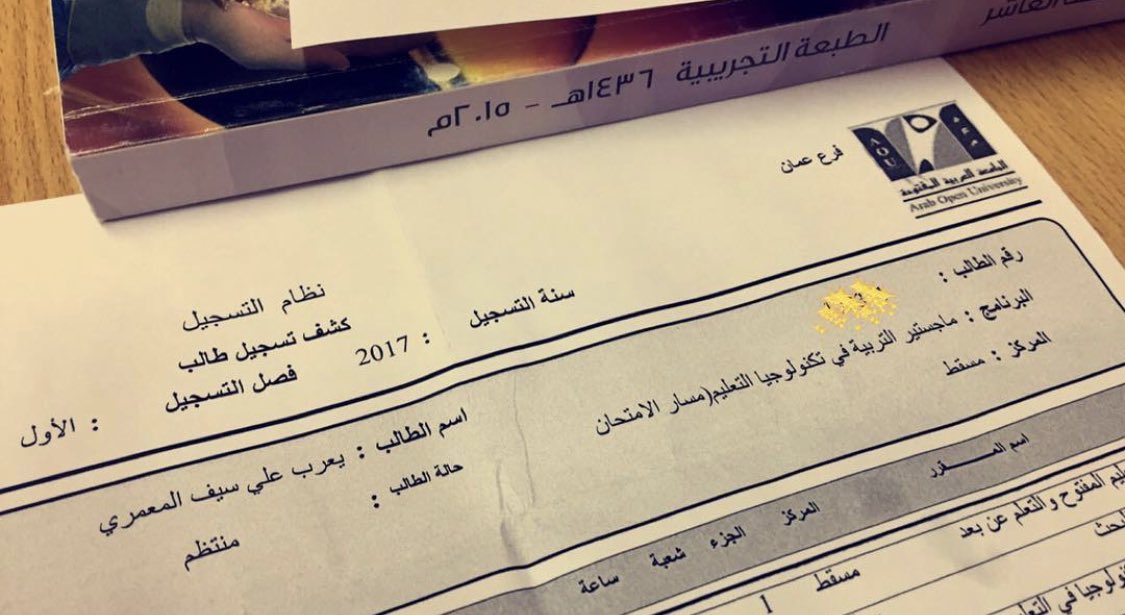 العاشر
الطبعة التجريبية ١٤٣٦هـ - ٢٠١٥م
AOU
الجامعة العربية المفتوحة
Arab Open University
فرع عمان
نظام التسجيل
كشف تسجيل طالب
سنة التسجيل : 2017 فصل التسجيل : الأول
رقم الطالب :
اسم الطالب : يعرب علي سيف المعمري
البرنامج : ماجستير التربية في تكنولوجيا التعليم(مسار الامتحان
حالة الطالب : منتظم
المركز : مسقط
اسم المـــقرر المركز الجزء شعبة ساعة
المفتوح والتعلم عن بعد مسقط 1